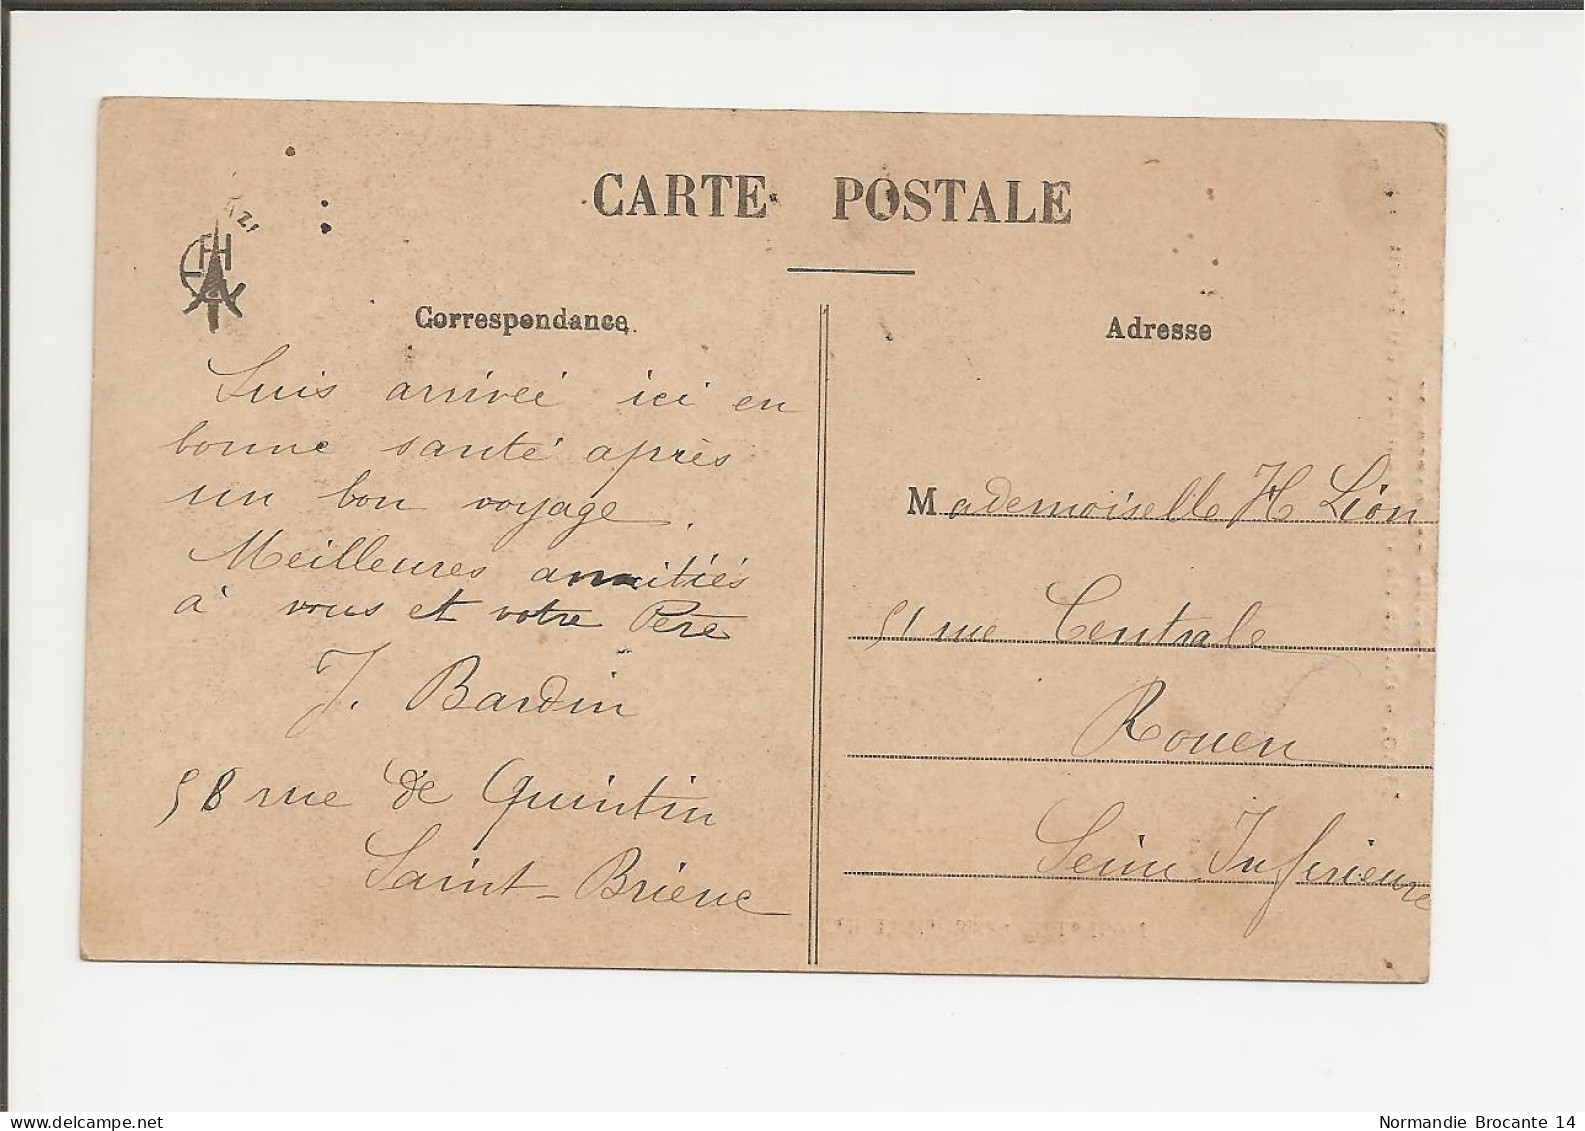 CARTE POSTALE
Correspondance
Adresse
Suis arrivée ici en
bonne santé après
un bon voyage.
Meilleures amitiés
à vous et votre Père
J. Bardin
58 rue de Quintin
Saint-Brieuc
Mademoiselle H Lion
51 rue Centrale
Rouen
Seine Inférieure
delcampe.net
Normandie Brocante 14